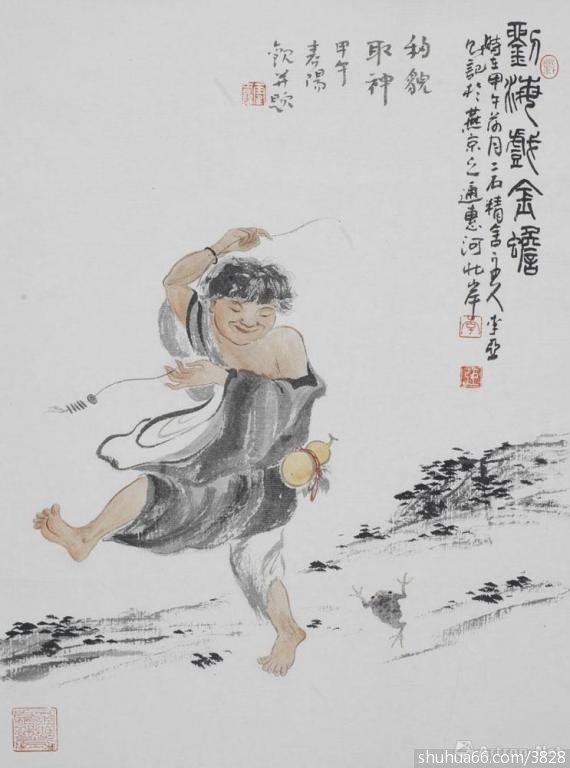 劉海戲金蟾
時在甲午月二石精舍主人李亞
記於燕京之通惠河北岸
貌
取神
甲午
春陽
欽并題
Artron.Net
shuhua66.com/3828